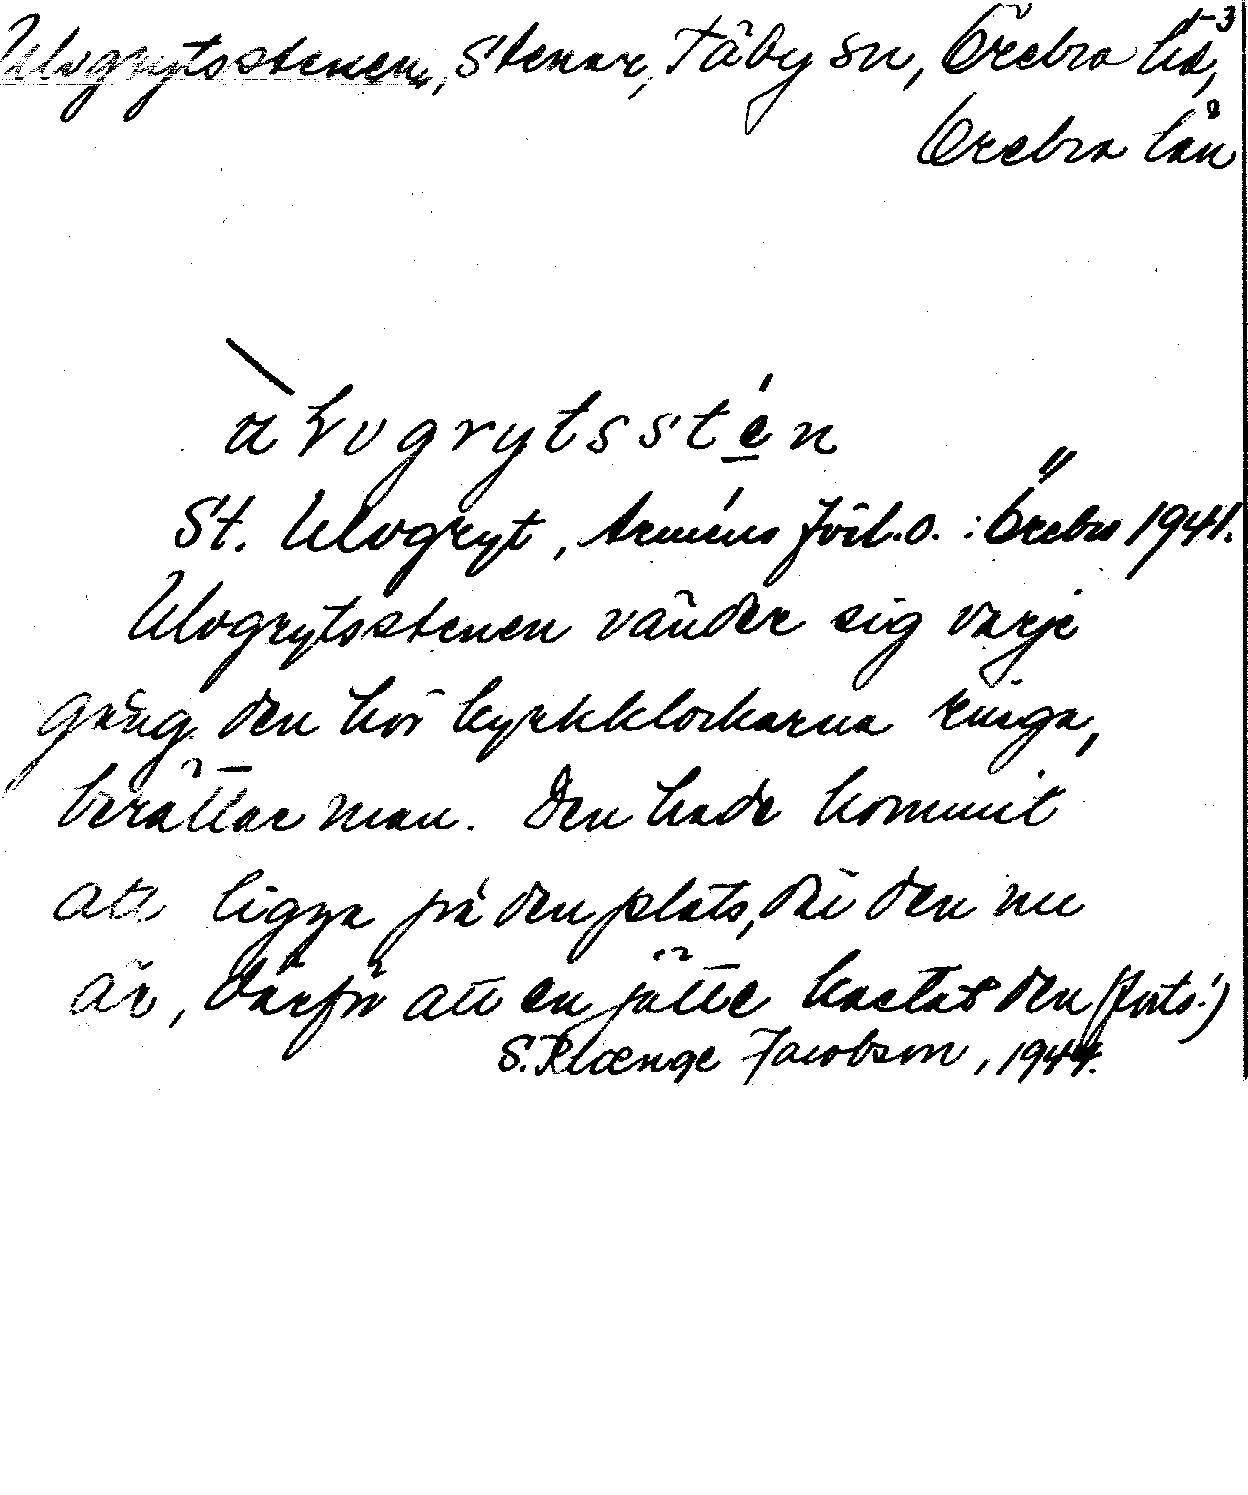 Ulvgrytsstenen, Stenar, Täby sn, Örebro hd, 1-3
Örebro län
St. Ulvgryt, Arméns förl.o. : Örebro 1941.
Ulvgrytsstenen vänder sig varje
gång den hör kyrkklockarna ringa,
berättar man. Den hade kommit
att ligga på den plats, där den nu
är, därför att en jätte kastat den (forts.)
S. Rhænge Jacobson, 1944.